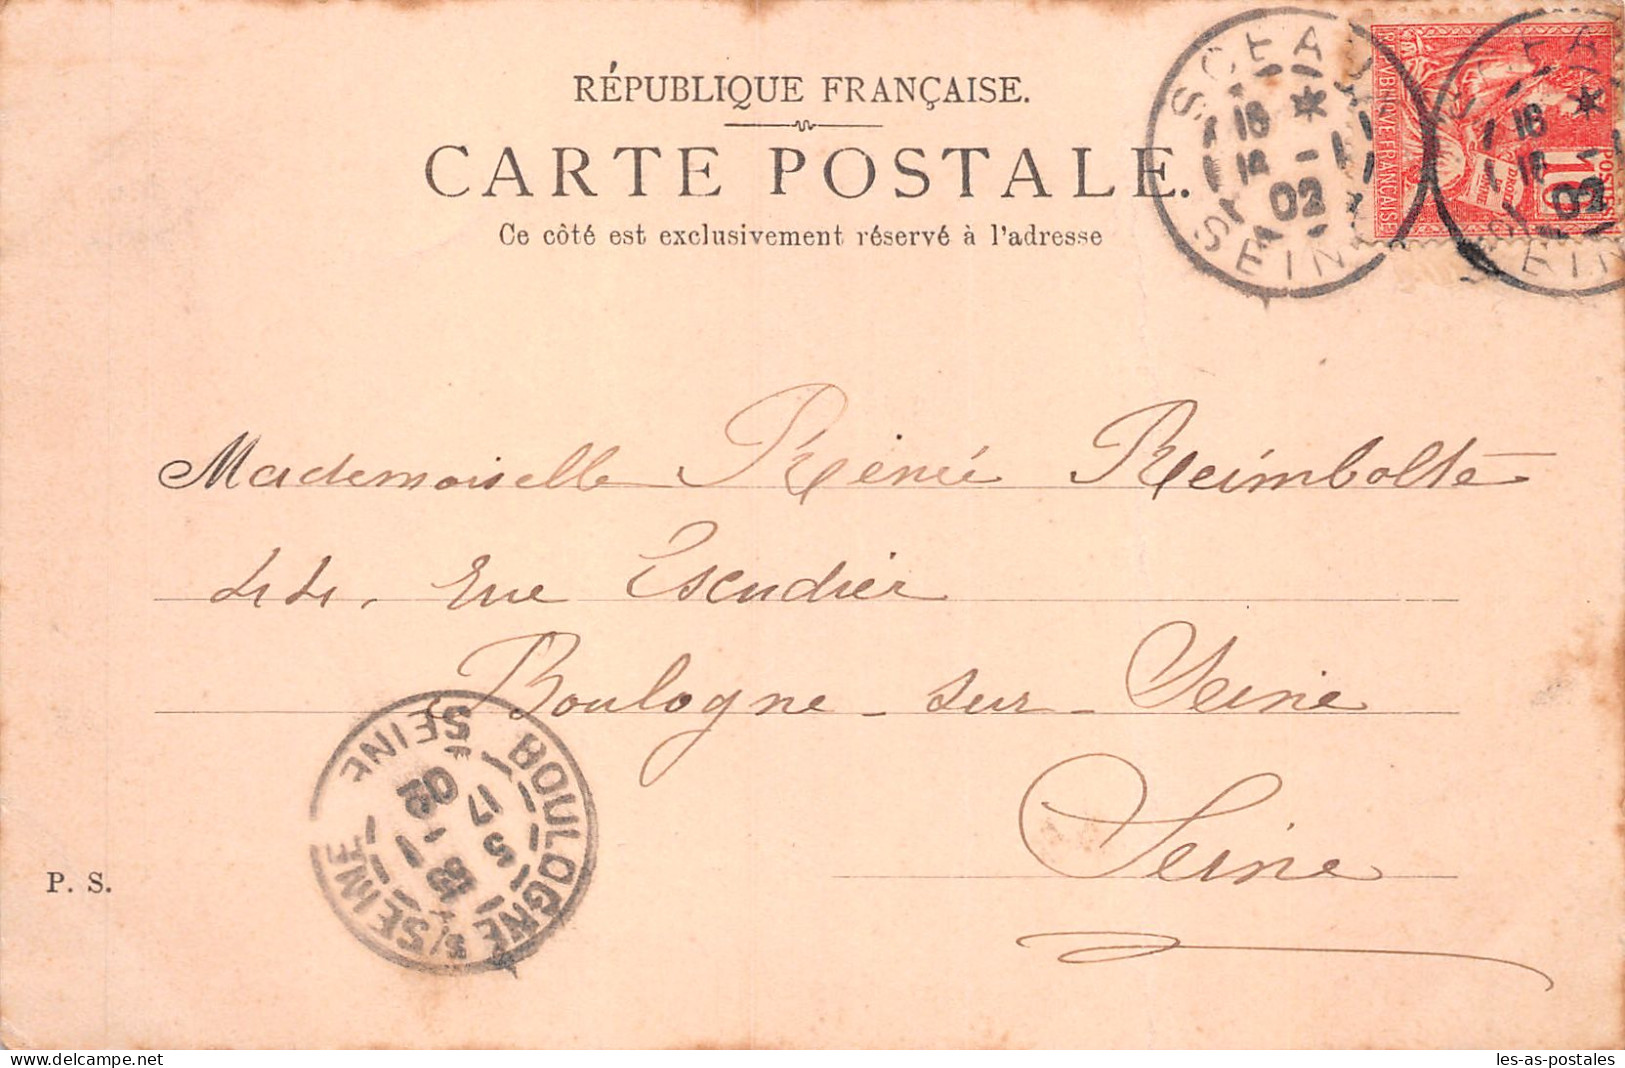 RÉPUBLIQUE FRANÇAISE.
CARTE POSTALE.
Ce côté est exclusivement réservé à l'adresse
SCEAUX
SEINE
02
REPUBLIQUE FRANÇAISE
POSTES
10
Mademoiselle Rénée Reimbolte
44, Rue Escudier
Boulogne-sur-Seine
Seine
BOULOGNE S/SEINE
SEINE
02
P. S.
les-as-postales.com